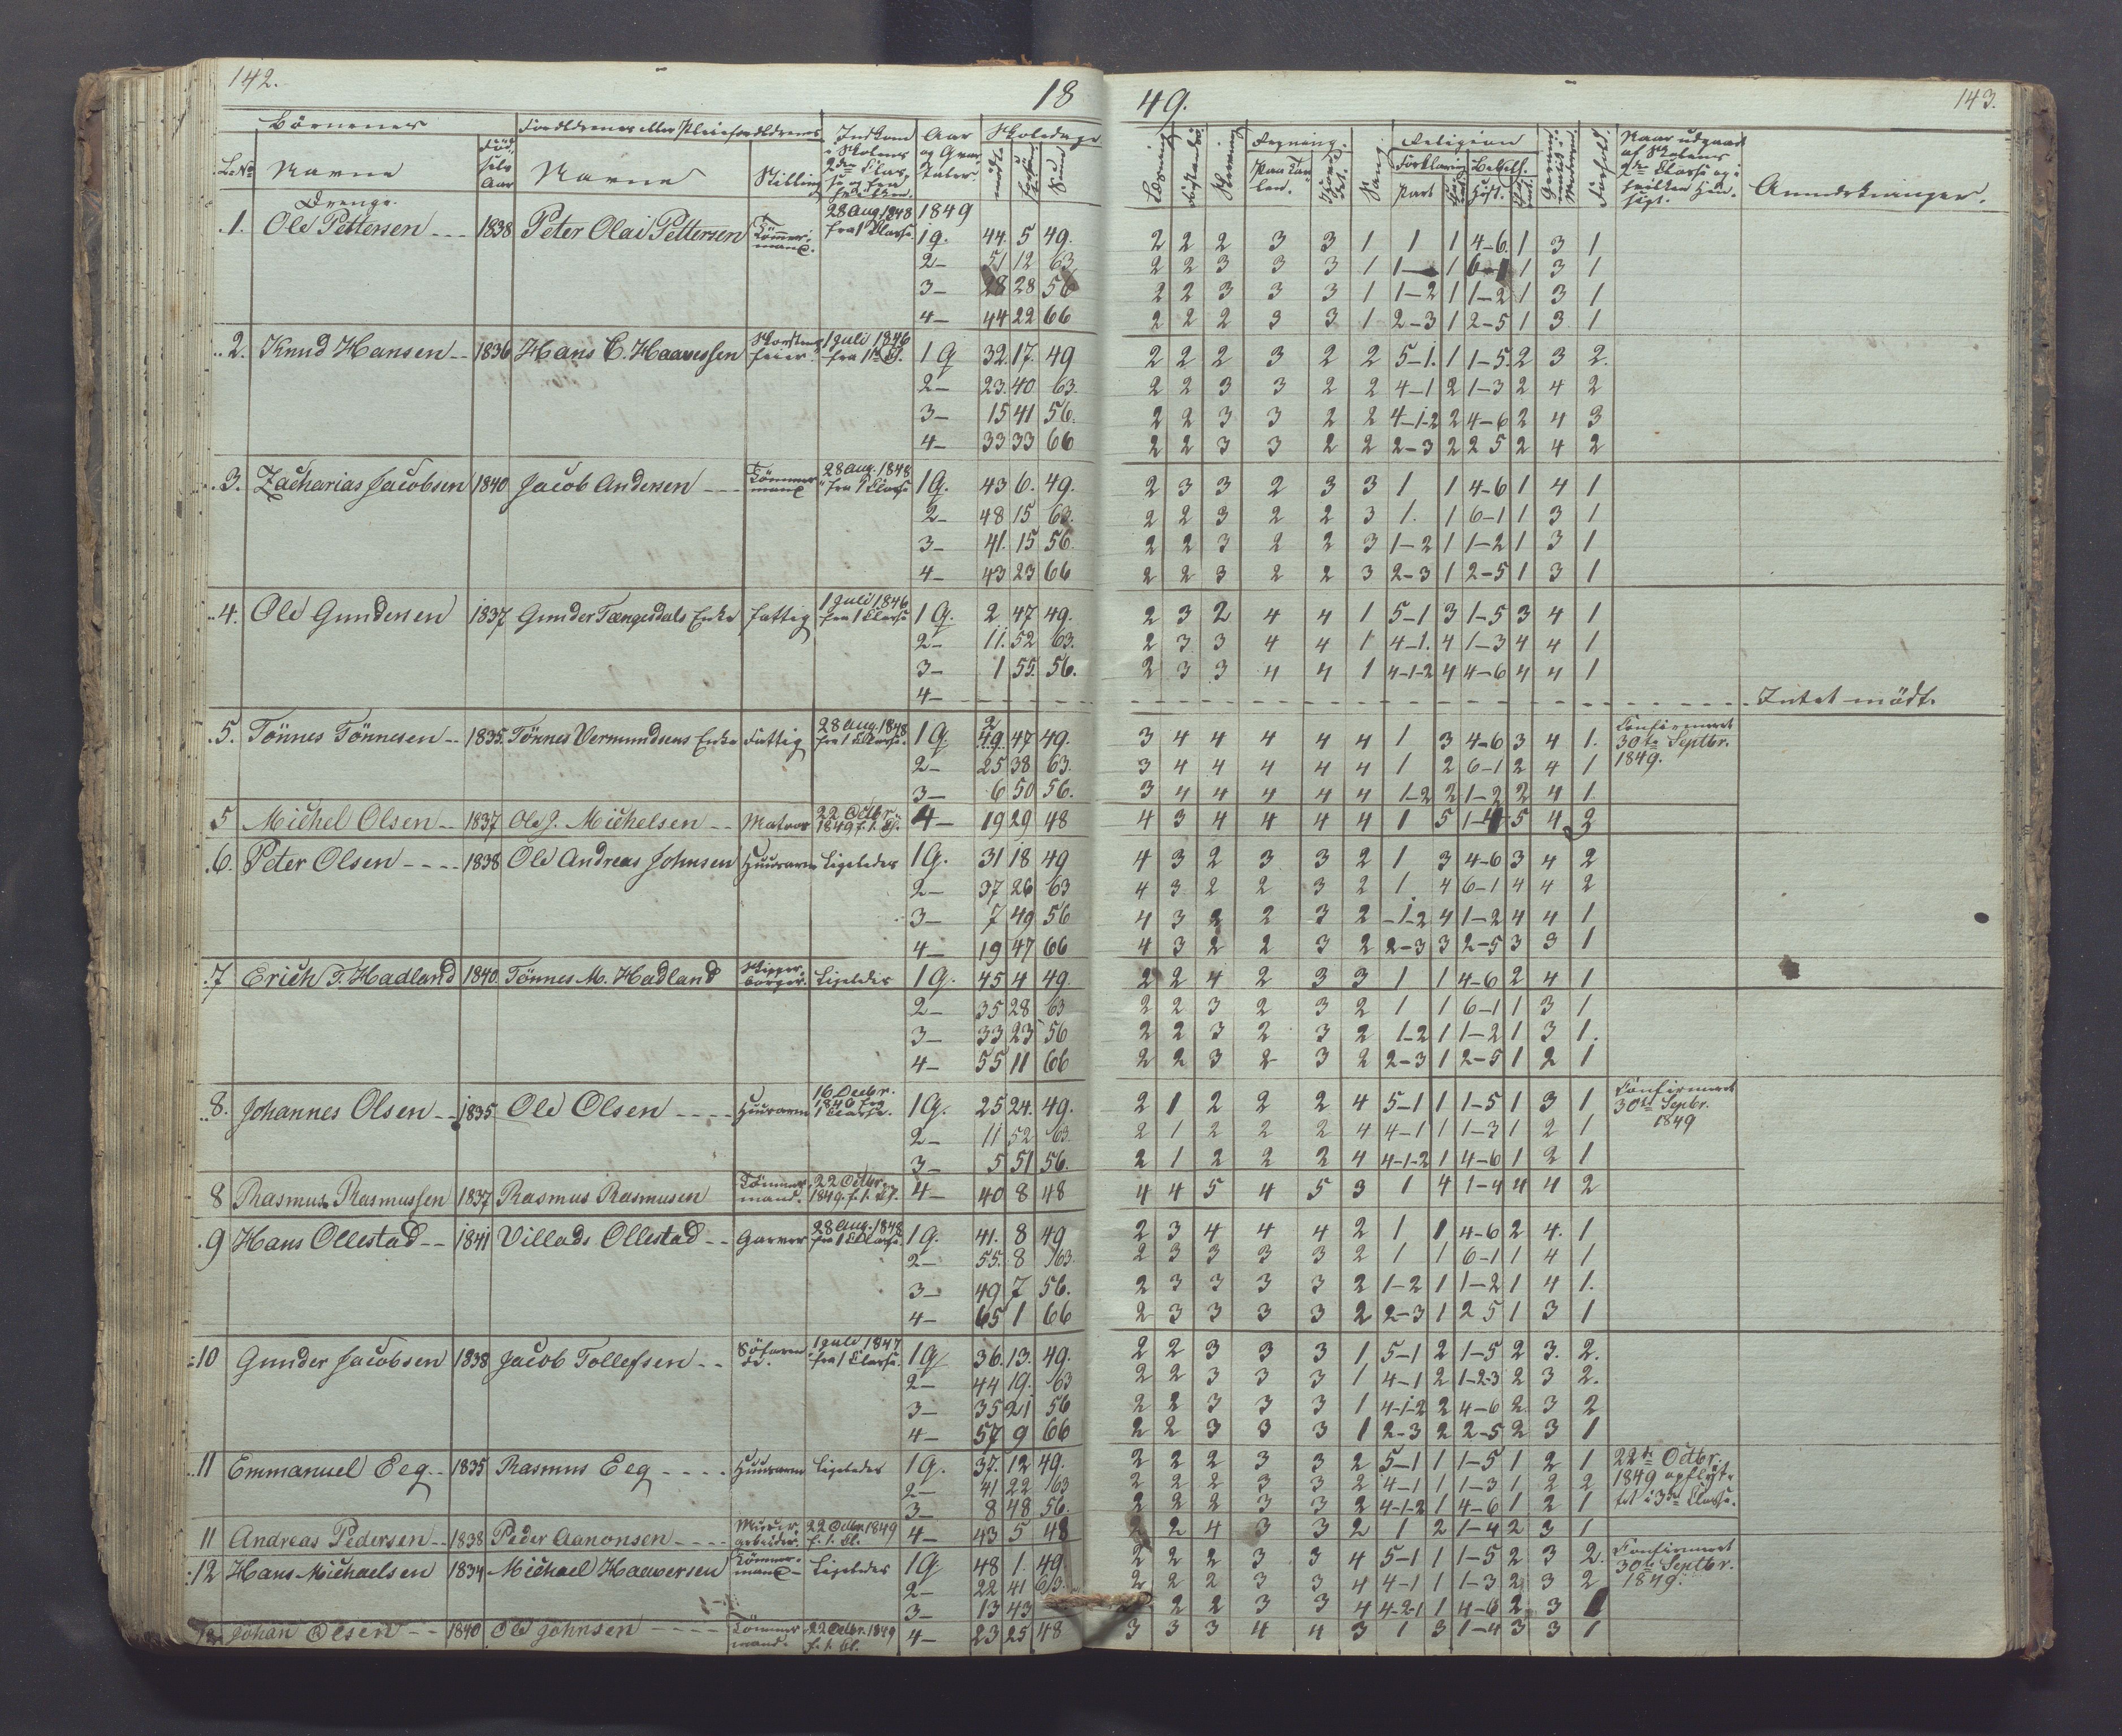 142.
18
49.
143.
Börnenes
Forældrenes eller Pleieforældrenes
Indkom i Skolens 2den Classe og fra hvilken
Aar og Quar-taler.
Skoledage
L. No
Navne
Föd-sels Aar
Navne
Stilling
mödt
forsömt
Sum
Læsning
Skrivning
Regning.
Paa Tavlen.
Sang
Religion
Forklaring
Part
Forhold.
Naar udgaaet af Skolens 2den Classe og i hvilken Hensigt.
Anmærkninger.
Drenge.
1. Ole Pettersen -- 1838 Peter Olai Pettersen Tömmermand. 28 Aug 1848 fra 1 Classe 1849
1 Q. 44. 5 49. 2 2 2 3 3 1 1 1 4-6. 1 3 1
2- 51 12 63 2 2 3 3 3 1 1- 1 6-1 1 3 1
3- 28 28 56 2 2 3 3 3 1 1-2 1 1-2 1 3 1
4- 44 22 66 2 2 2 3 3 1 2-3 1 2-5 1 3 1
2. Knud Hansen -- 1836 Hans C. Haavessen Skorstensfeier. 1 Juli 1846 fra 1ste Cl. 1 Q 32. 17. 49 2 2 2 3 2 2 5-1. 1 1-5. 2 3 2.
2- 23. 40 63. 2 2 3 3 2 2 4-1 2 1-3 2 4 2
3- 15 41 56. 2 2 3 3 2 2 4-1-2 2 4-6 2 4 3
4- 33 33 66 2 2 3 3 2 2 2-3 2 2 5 2 4 2
3. Zacharias Jacobsen 1840 Jacob Andersen -- Tömmermand 28 Aug. 1848 fra 1 Classe 1 Q. 43 6. 49. 2 3 3 2 3 3 1 1 4-6 1 4 1
2- 48 15 63. 2 2 3 2 2 3 1. 1 6-1 1 3 1
3- 41. 15 56. 2 2 3 2 2 3 1-2 1 1-2 1 3 1
4- 43 23 66 2 2 3 2 2 3 2-3 1 2-5 1 3 1
4. Ole Gundersen 1837 Gunder Tængesdals Enke fattig 1 Juli 1846 fra 1 Classe 1 Q. 2 47 49. 2 3 2 4 4 1 5-1 3 1-5 3 4 1
2- 11. 52 63. 2 3 3 4 4 1 4-1. 4 1-3 4 4 1
3- 1 55. 56. 2 3 3 4 4 1 4-1-2 4 4-6 4 4 1
4- - - - - - - - - - - - - - - - Intet mödt.
5. Tönnes Tönnesen -- 1835. Tönnes Vermundsens Enke Fattig 28 Aug. 1848 fra 1 Classe. 1 Q 2 47 49. 3 4 4 4 4 4 1 3 4-6 3 4 1. Confirmeret 30te Septbr. 1849.
2- 25 38 63. 3 4 4 4 4 4 1 2 6-1 2 4 1
3- 6 50 56. 3 4 4 4 4 4 1-2 2 1-2 2 4 1
5 Michel Olsen -- 1837 Ole J. Michelsen -- Matros 22 Octbr. 1849 f. 1. Cl. 4- 19 29 48 4 3 4 4 4 4 1 5 1-4 5 4 2
6. Peter Olsen ---- 1838 Ole Andreas Johnsen Huusarm Ligeledes 1 Q. 31 18 49 4 3 2 3 3 2 1 3 4-6 3 4 2
2- 37 26 63 4 3 2 2 3 2 1 4 6-1 4 4 2
3- 7 49 56 4 3 2 2 3 2 -1-2 4 1-2 4 4 1
4- 19 47 66 4 3 2 2 3 2 2-3 3 2-5 3 3 1
7 Erich T. Hadland 1840 Tönnes M. Hadland Skipperborger. Ligeledes 1 Q. 45 4 49. 2 2 4 2 3 3 1 1 4-6 2 4 1
2- 35 28 63 2 2 3 2 3 2 1 1 6-1 1 3 1
3- 33 23 56 2 2 3 2 3 2 1-2 1 1-2 1 3 1.
4- 55 11 66 2 2 3 2 3 2 2-3 1 2-5 1 2 1
8. Johannes Olsen -- 1835 Ole Olsen ---- Huusarm 16 Decbr. 1846 fra 1 Classe. 1 Q. 25 24. 49. 2 1 2 2 2 4 5-1 1 1-5 1 3 1 Confirmeret 30te Septbr. 1849
2- 11 52 63. 2 1 2 2 2 4 4-1 1 1-3 1 2 1
3- 5 51 56. 2 1 2 2 2 4 4-1-2 1 4-6 1 2 1
8 Rasmus Rasmussen 1837 Rasmus Rasmusen Tömmermand. 22 Octbr. 1849. f. 1. Cl. 4- 40 8 48 4 4 5 4 5 3 1 4 1-4 4 4 2
9 Hans Ollestad -- 1841 Villads Ollestad -- Garver 28 Aug. 1848 fra 1 Classe. 1 Q. 41. 8 49 2 3 4 4 4 2 1 1 4-6 2 4. 1
2- 55. 8 63 2 3 3 3 3 2 1 1 6-1 1 4 1
3- 49 7 56. 2 3 3 3 3 2 1-2 1 1-2 1 4 1.
4- 65 1 66 2 3 3 3 3 2 2-3 1 2 5 1 3 1
10 Gunder Jacobsen 1838 Jacob Tollefsen -- Söfarende. 1 Juli 1847 fra 1 Classe. 1 Q 36. 13. 49. 2 2 3 3 3 1 5-1 2 1-5 2 3. 2.
2- 44 19. 63 2 2 3 3 3 1 4-1 2 1-2-3 2 3 2.
3- 35 21 56 2 2 3 3 3 1 4-1-2 2 4-6 2 3 2
4- 57 9 66 2 2 3 3 3 1 2-3 2 2-5 2 3 1
11 Emmanuel Eeg -- 1835 Rasmus Eeg ---- Huusarm Ligeledes 1 Q. 37. 12 49. 2 2 2 3 3 2 5-1 1 1-5 1 2 1 22de Octbr. 1849 opflyttet i 3die Classe.
2- 41 22 63 2 2 2 3 3 2 4-1 1 1-3 1 2 2
3- 8 48 56. 2 2 2 3 3 2 4-1-2 1 4-6 1 2 1
11 Andreas Pedersen -- 1838 Peder Aanonsen ---- Muurarbeider. 22 Octbr. 1849 f. 1. Cl. 4- 43 5 48 2 2 4 3 3 2 1 2 1-4 2 3 1
12 Hans Michaelsen 1834 Michael Haaversen Tömmermand- Ligeledes 1 Q 48 1. 49. 2 2 2 3 3 4 5-1 1 1-5 2 3 2. Confirmeret 30te Septbr. 1849.
2- 22 41 63. 2 2 2 3 3 4 4-1 1 1-3 2 3 2
3- 13 43 2 2 3 3 4 4-2-1 1 4-6 2 3
12 Johan Olsen -- 1840 Ole Johnsen ---- Tömmermand. 22 Octbr. 1849 f. 1. Cl. 4- 23 25 48 3 3 3 4 4 3 1 3 1-4 3 3 1